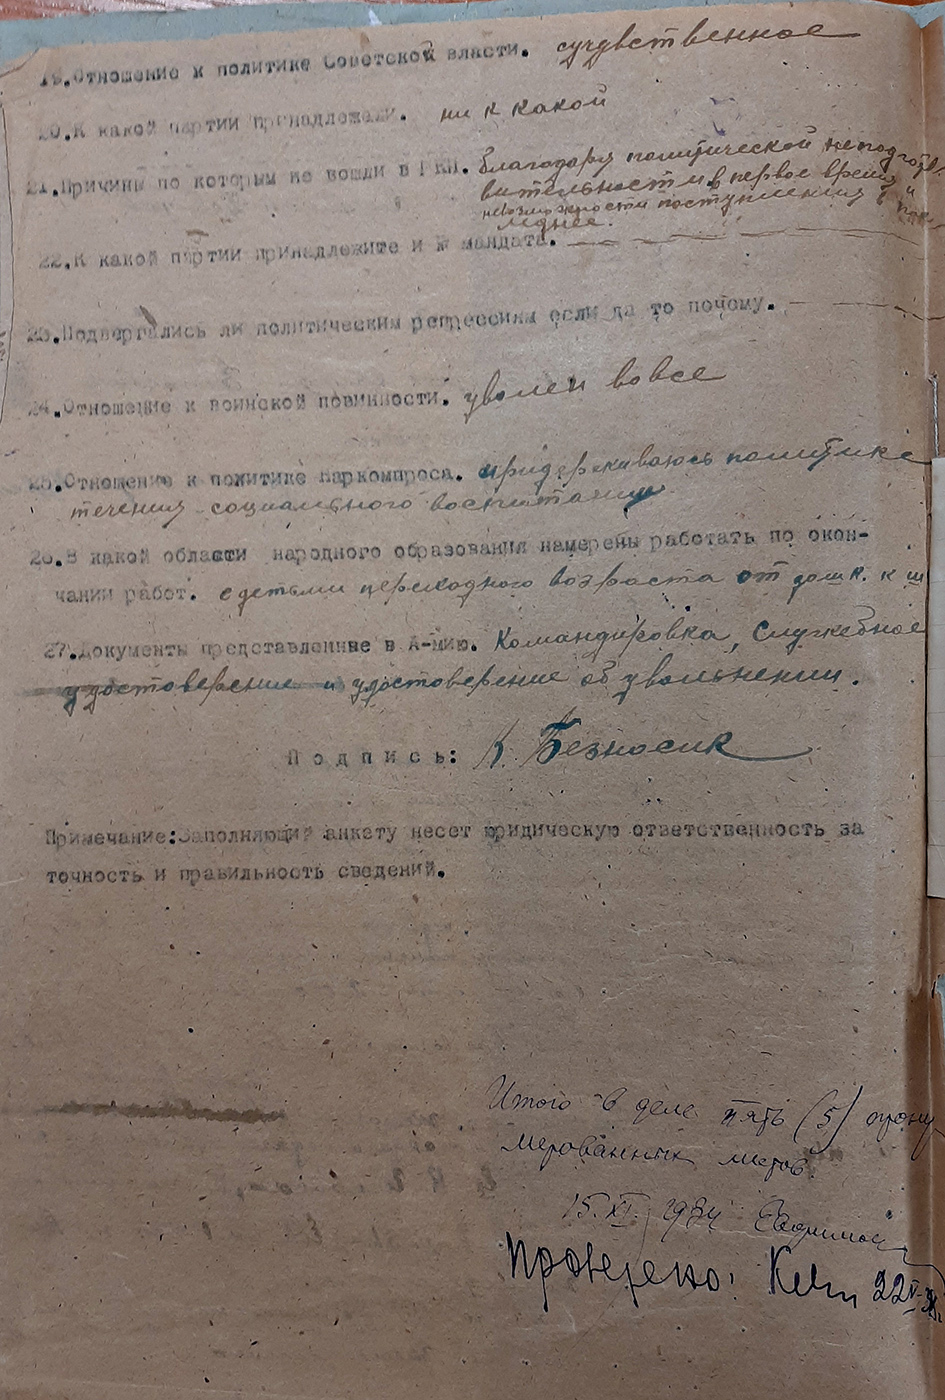 19.Отношение к политике Советской власти. сучувственное
20.К какой партии принадлежали. ни к какой
21.Причины по которым не вошли в РКП. Благодаря политической неподгото-
вительности в первое время и
невозможности поступления в пос
леднее.
22.К какой партии принадлежите и № мандата. —
23.Подвергались ли политическим репрессиям если да то почему. —
24.Отношение к воинской повинности. уволен вовсе
25.Отношение к политике Наркомпроса. придерживаюсь политике
течения социального воспитания
26.В какой области народного образования намерены работать по окон-
чании работ. с детьми переходного возраста от дошк. к ш
27.Документы представленные в А-мию. Командировка, Служебное
удостоверение и удостоверение об увольнении.
Подпись: К. Безносик
Примечание:Заполняющий анкету несет юридическую ответственность за
точность и правильность сведений.
Итого в деле пять (5) прону
мерованных листов.
15.XI.
Проверено: 22